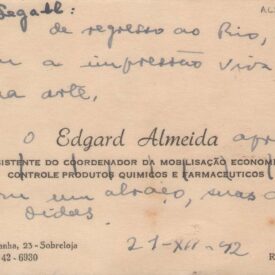 Segall:
de regresso ao Rio,
a impressão viva
arte,
O Edgard Almeida
SISTENTE DO COORDENADOR DA MOBILISAÇÃO ECONOMI
CONTROLE PRODUTOS QUIMICOS E FARMACEUTICOS
um abraço, suas
didas.
anha, 23 - Sobreloja
42 - 6930
21-XII-42